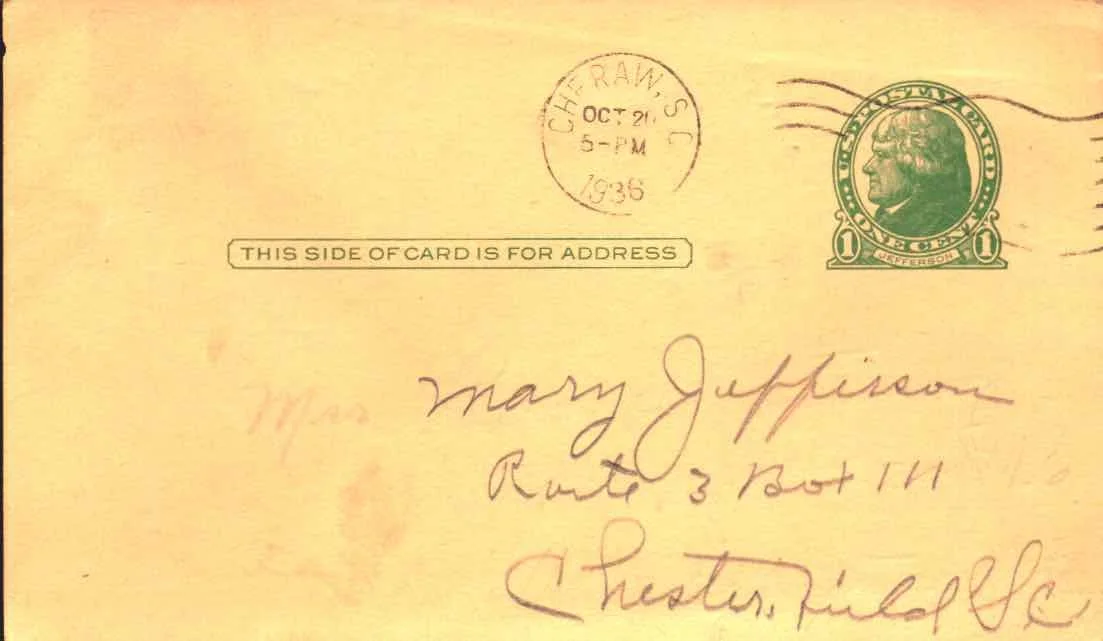 CHERAW, S C
OCT 2
5-PM
1936
U.S. POSTAL CARD
ONE CENT
1 JEFFERSON 1
THIS SIDE OF CARD IS FOR ADDRESS
Mrs Mary Jefferson
Route 3 Box 111
Chesterfield S C